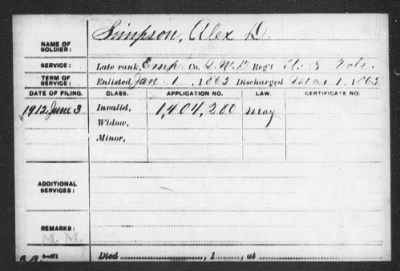 Simpson, Alex D.
NAME OF SOLDIER:
SERVICE: Late rank, Emp. Co. Q.M.D. Regt U.S. Vols.
TERM OF SERVICE: Enlisted Jan 1, 1863 Discharged Mar 1, 1865
DATE OF FILING. CLASS. APPLICATION NO. LAW. CERTIFICATE NO.
1912 June 3. Invalid, 1,404,200 May
Widow,
Minor,
ADDITIONAL SERVICES:
REMARKS:
M. M.
Died , 1 , at